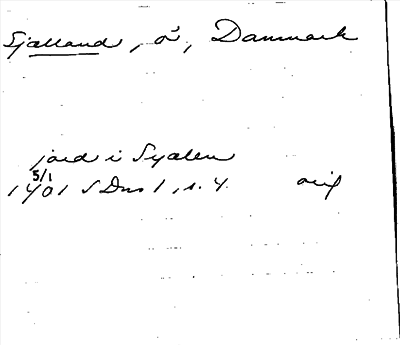 Själland, ö, Danmark
jord i Syalen
5/1
1401 SDns 1, s. 4. orig